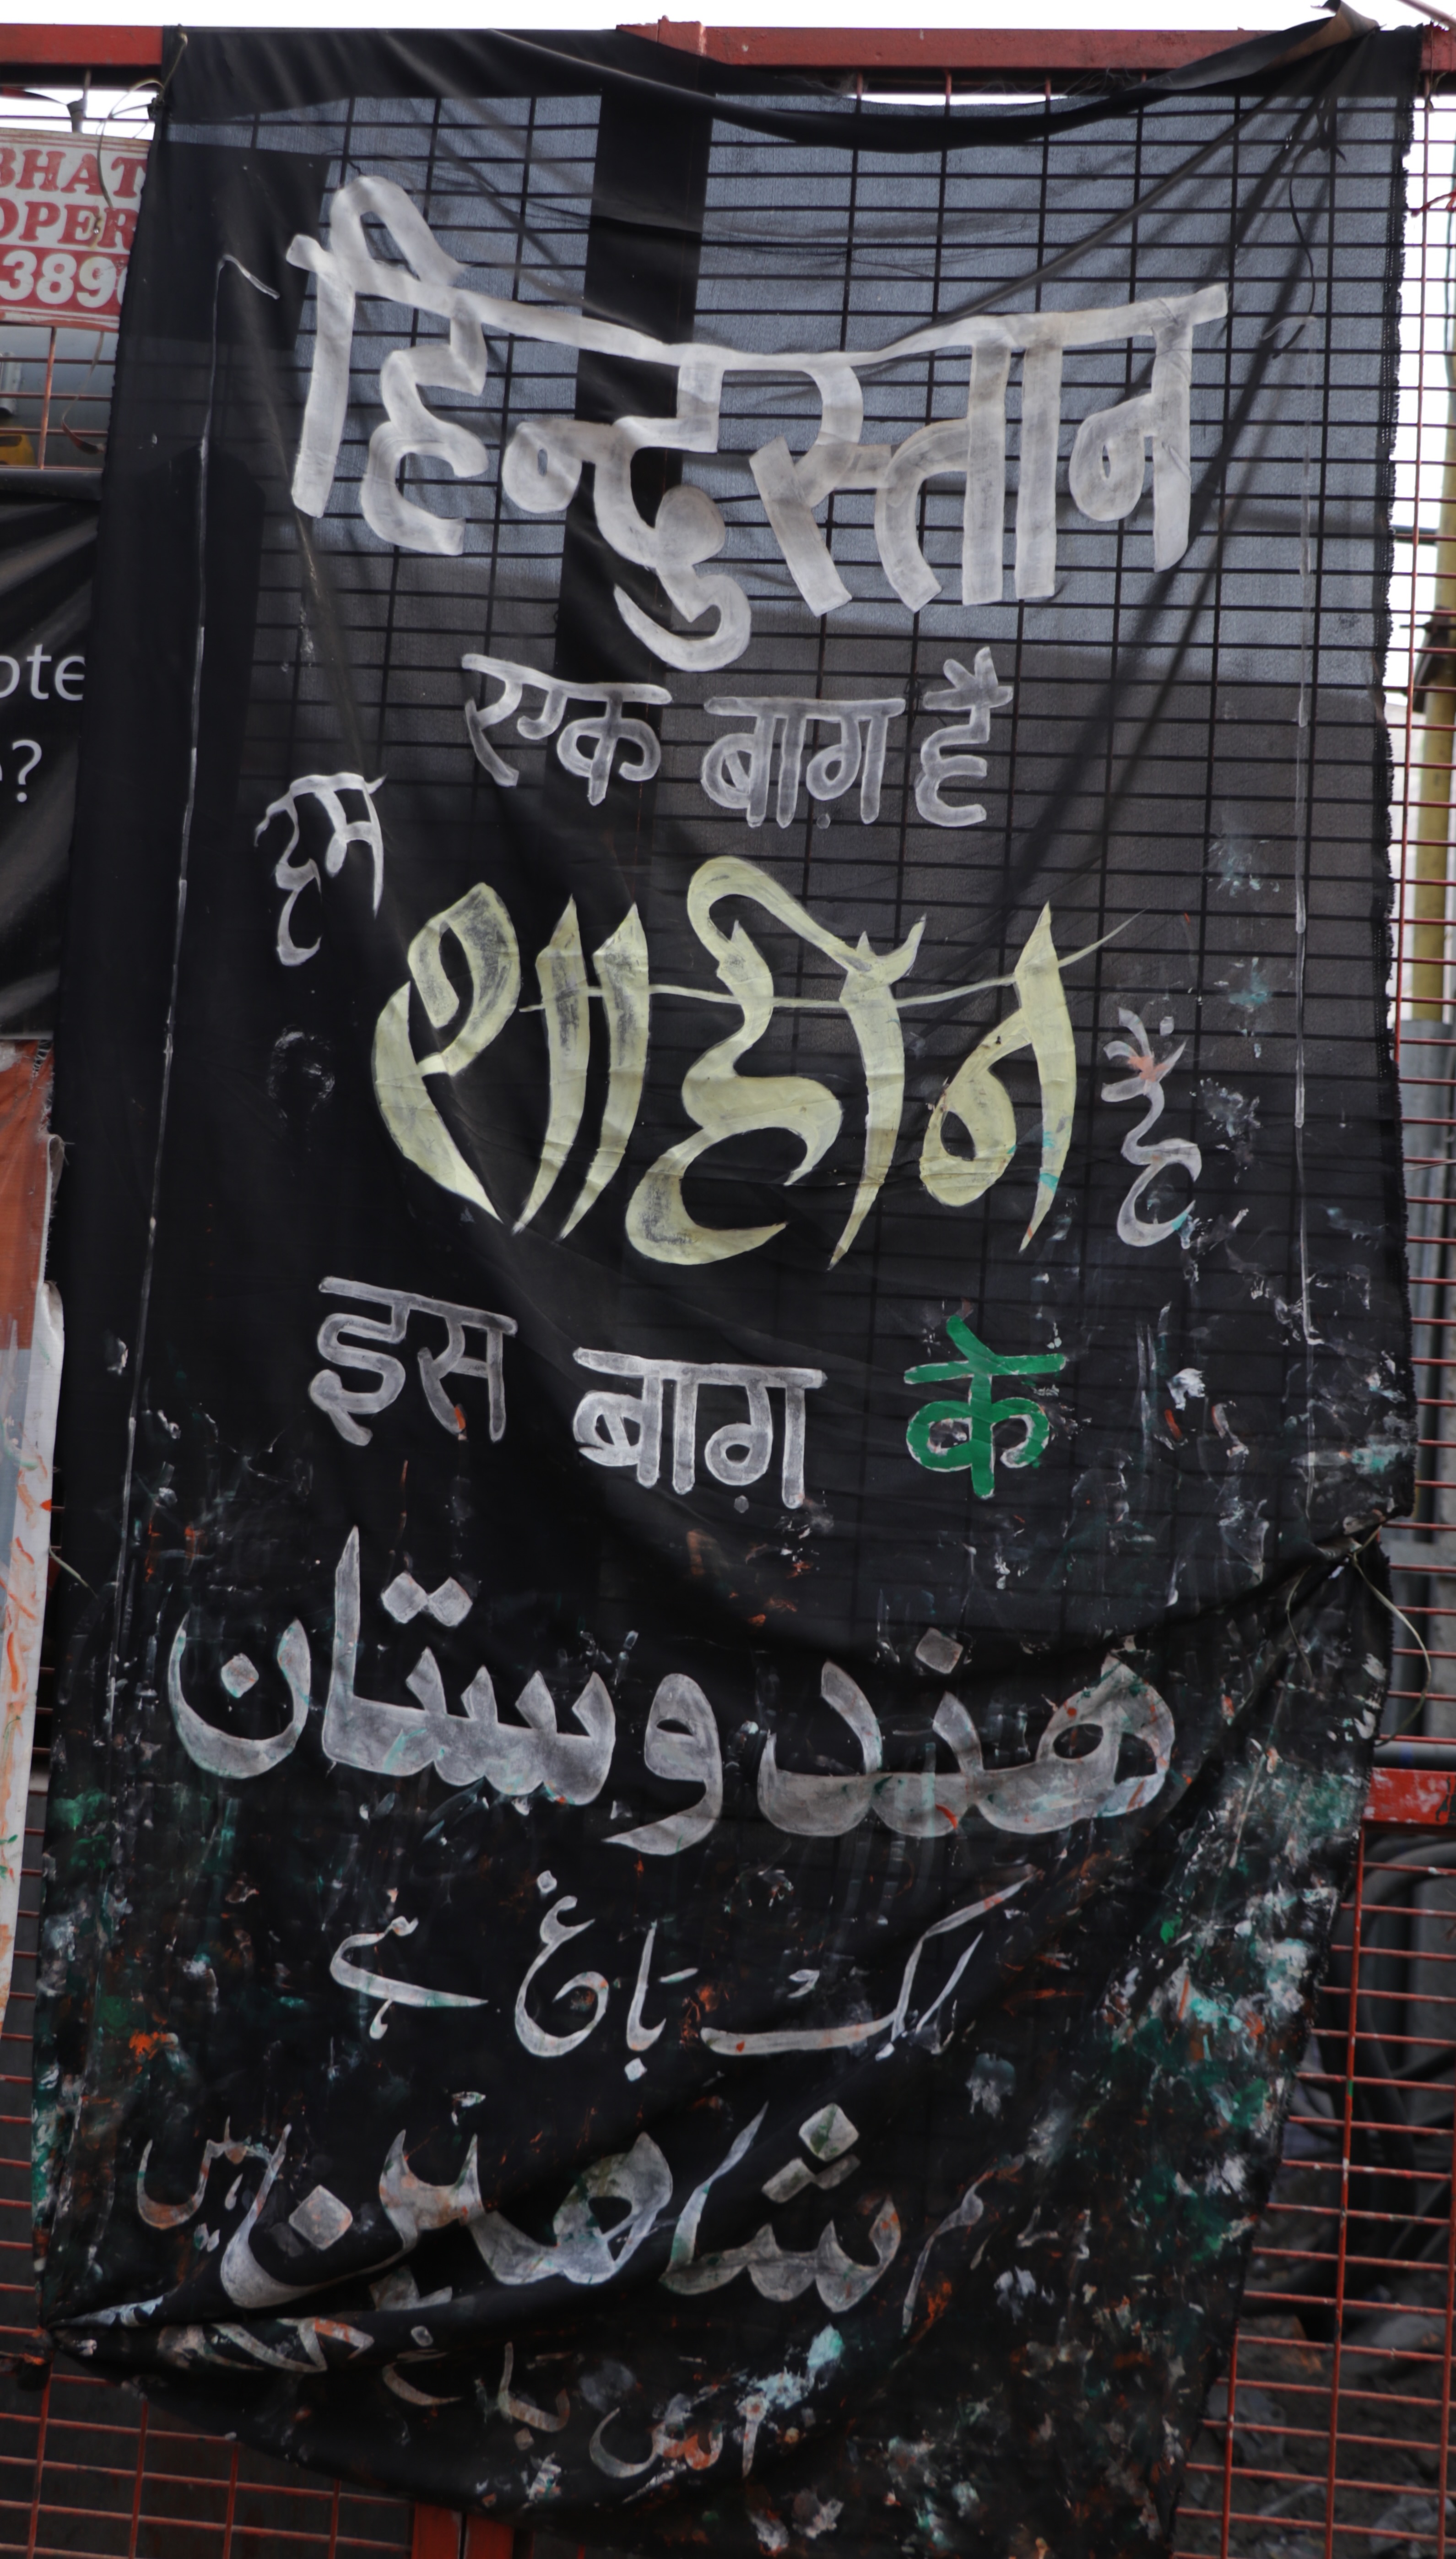 BHAT
OPER
389
ote
?
हिन्दुस्तान
एक बाग़ है
हम
शाहीन
हैं
इस बाग़ के
ھندوستان
اِک باغ ہے
ہم شاھین ہیں
اس باغ کے